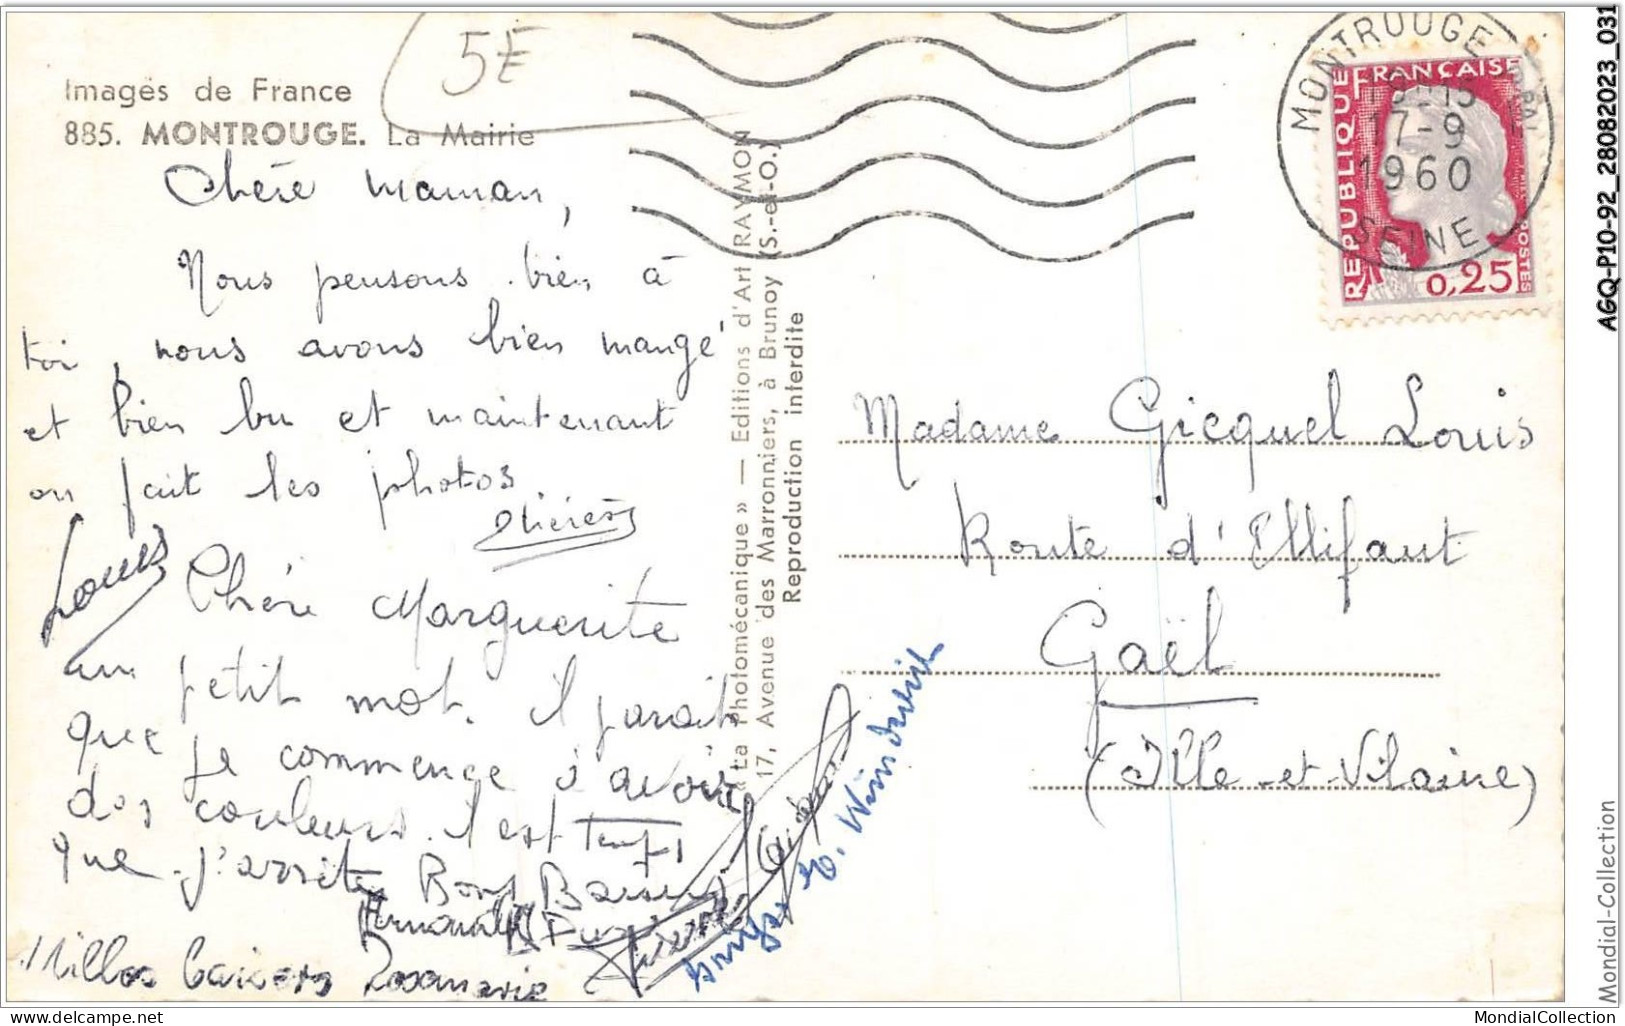 5€
Images de France
885. MONTROUGE. La Mairie
Chère Maman,
Nous pensons bien à
toi, nous avons bien mangé
et bien bu et maintenant
on fait les photos
Louis
Chère Marguerite
un petit mot. il parait
que je commence à avoir
des couleurs. il est temps
que j'arrête Bons Baisers
Milles baisers Rosemarie
« La Photomécanique » — Editions d'Art RAYMON
17, Avenue des Marronniers, à Brunoy (S.-et-O.)
Reproduction interdite
MONTROUGE
17-9
1960
SEINE
REPUBLIQUE FRANÇAISE
POSTES
0,25
Madame Gicquel Louis
Route d'Illifaut
Gaël
(Ille-et-Vilaine)
AGQ-P10-92_28082023_031
Mondial-Collection
delcampe.net
MondialCollection